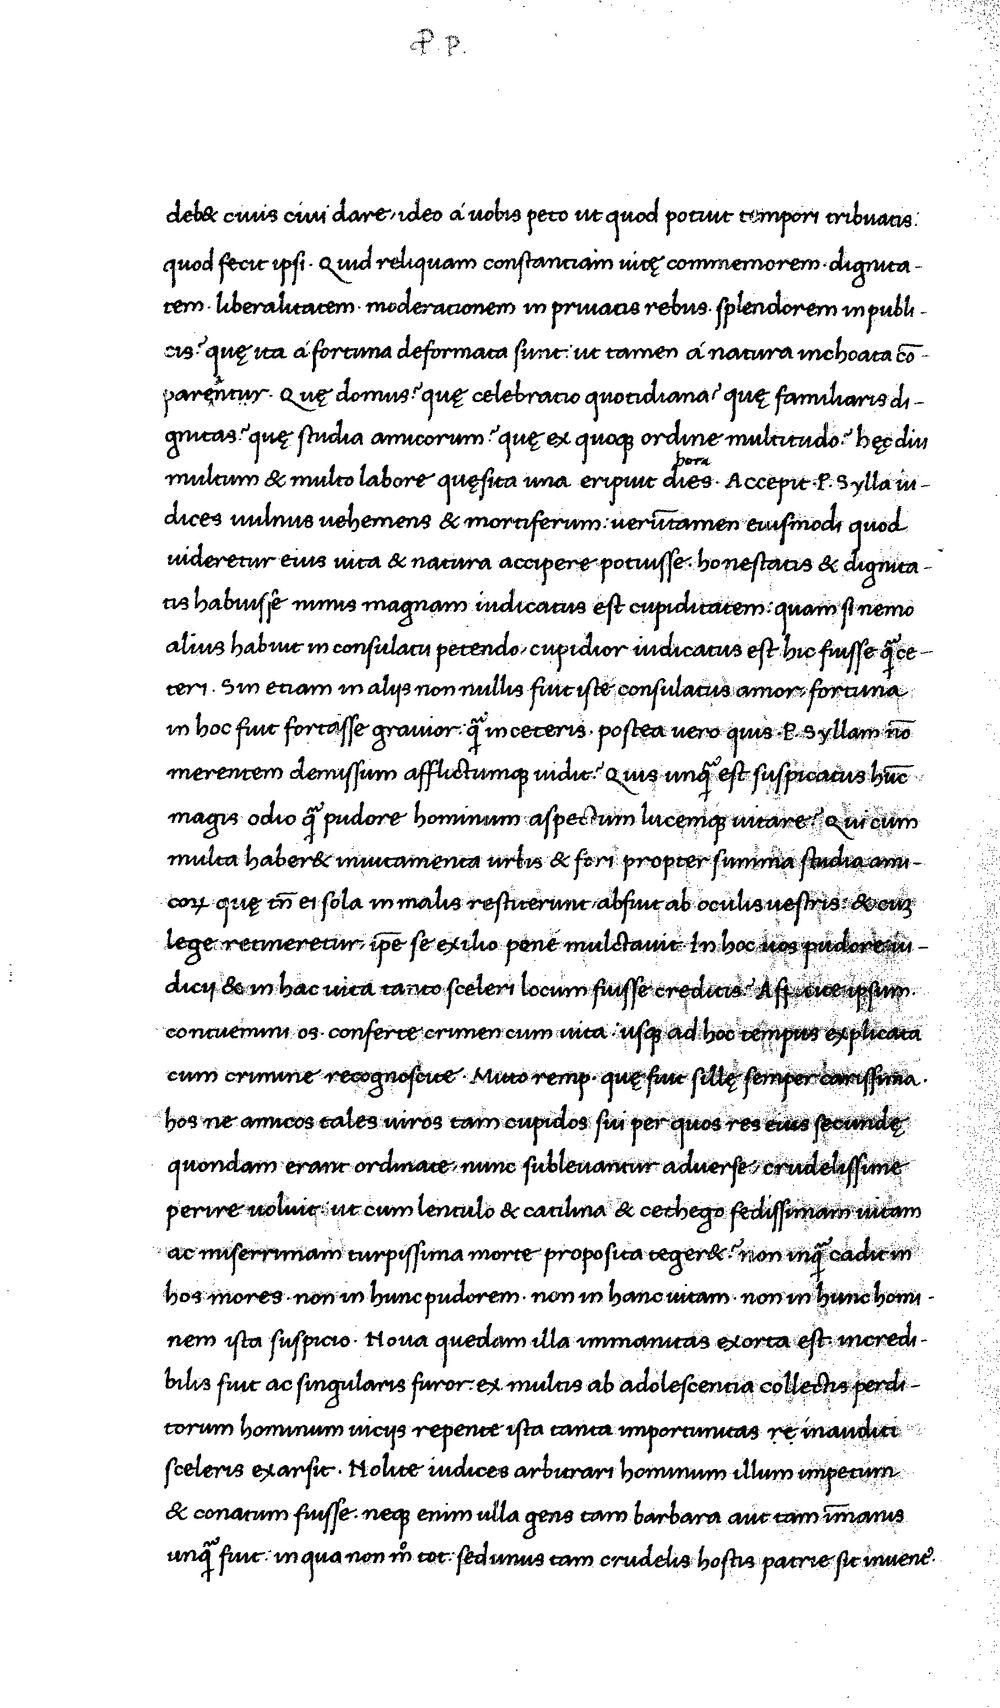 P P.
deb& ciuis ciui dare, ideo á uobis peto ut quod potuit tempori tribuatis:
quod fecit ipsi. Quid reliquam constantiam uitę commemorem. dignita-
tem. liberalitatem. moderationem in priuatis rebus. splendorem in publi-
cis? quę ita á fortuna deformata sunt: ut tamen á natura inchoata cō-
parentur. Quę domus? quę celebratio quotidiana? quę familiaris di-
gnitas? quę studia amicorum? quę ex quoqȝ ordine multitudo? hęc diu
multum & multo labore quęsita una eripuit dies. Accepit .P. Sylla iu-
hora
dices uulnus uehemens & mortiferum: uerūtamen eiusmodi quod
uideretur eius uita & natura accipere potuisse. honestatis & dignita-
tis habuisse nimis magnam iudicatus est cupiditatem: quam si nemo
alius habuit in consulatu petendo, cupidior iudicatus est hic fuisse q̃ ce-
teri. Sin etiam in alijs non nullis fuit iste consulatus amor, fortuna
in hoc fuit fortasse grauior. q̃ in ceteris. postea uero quis .P. Syllam nō
merentem demissum afflictumqȝ uidit? Quis unq̃ est suspicatus hūc
magis odio q̃ pudore hominum aspectum lucemqȝ uitare? Qui cum
multa haber& inuitamenta urbis & fori propter summa studia ami-
coꝝ quę tn̄ ei sola in malis restiterunt, absuit ab oculis uestris: & cuȝ
lege retineretur, ip̄e se exilio pene mulctauit. In hoc uos pudore iu-
dicij & in hac uita tanto sceleri locum fuisse creditis? Aspicite ipsum.
contuemini os. conferte crimen cum uita. usqȝ ad hoc tempus explicata
cum crimine recognoscite. Mitto remp. quę fuit sillę semper carissima.
hos ne amicos tales uiros tam cupidos sui per quos res eius secundę
quondam erant ordinate, nunc subleuantur aduerse, crudelissime
perire uoluit: ut cum lentulo & catilina & cethego fedissimam uitam
ac miserrimam turpissima morte proposita teger&? non inq̃ cadit in
hos mores. non in hunc pudorem. non in hanc uitam. non in hunc homi-
nem ista suspicio. Noua quedam illa immanitas exorta est. incredi-
bilis fuit ac singularis furor. ex multis ab adolescentia collectis perdi-
torum hominum uicijs repente ista tanta importunitas rę inauditi
sceleris exarsit. Nolite iudices arbitrari hominum illum impetum
& conatum fuisse. neqȝ enim ulla gens tam barbara aut tam īmanis
unq̃ fuit: in qua non mͦ tot: sed unus tam crudelis hostis patrie sit inuenͨ.